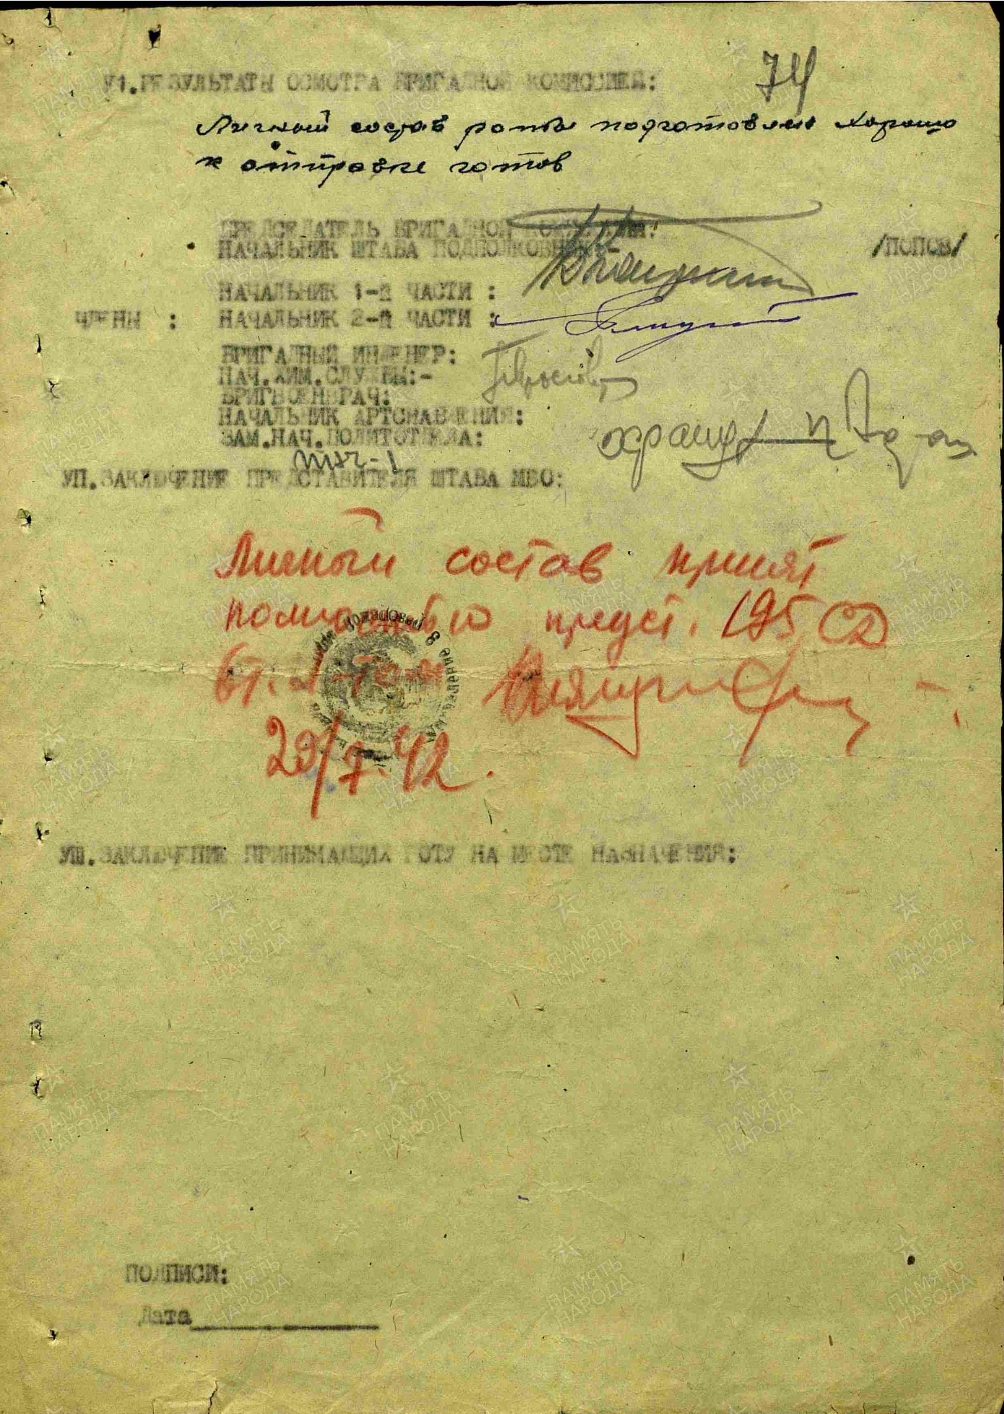 74
У1.РЕЗУЛЬТАТЫ ОСМОТРА БРИГАДНОЙ КОМИССИЕЙ:
Личный состав роты подготовлен хорошо
к отправке готов
ПРЕДСЕДАТЕЛЬ БРИГАДНОЙ
НАЧАЛЬНИК ШТАБА ПОДПОЛКОВНИК:- /ПОПОВ/
НАЧАЛЬНИК 1-й ЧАСТИ :
ЧЛЕНЫ : НАЧАЛЬНИК 2-й ЧАСТИ :
БРИГАДНЫЙ ИНЖЕНЕР:
НАЧ.ХИМ.СЛУЖБЫ:-
БРИГВОЕНВРАЧ:
НАЧАЛЬНИК АРТСНАБЖЕНИЯ:
ЗАМ.НАЧ.ПОЛИТОТДЕЛА:
УП.ЗАКЛЮЧЕНИЕ ПРЕДСТАВИТЕЛЯ ШТАБА МВО:
Личный состав принят
полностью предст. 195 СД
Ст. л-том
29/7.42.
УШ.ЗАКЛЮЧЕНИЕ ПРИНИМАЮЩИХ РОТУ НА МЕСТЕ НАЗНАЧЕНИЯ:
ПАМЯТЬ НАРОДА
ПОДПИСИ:
Дата